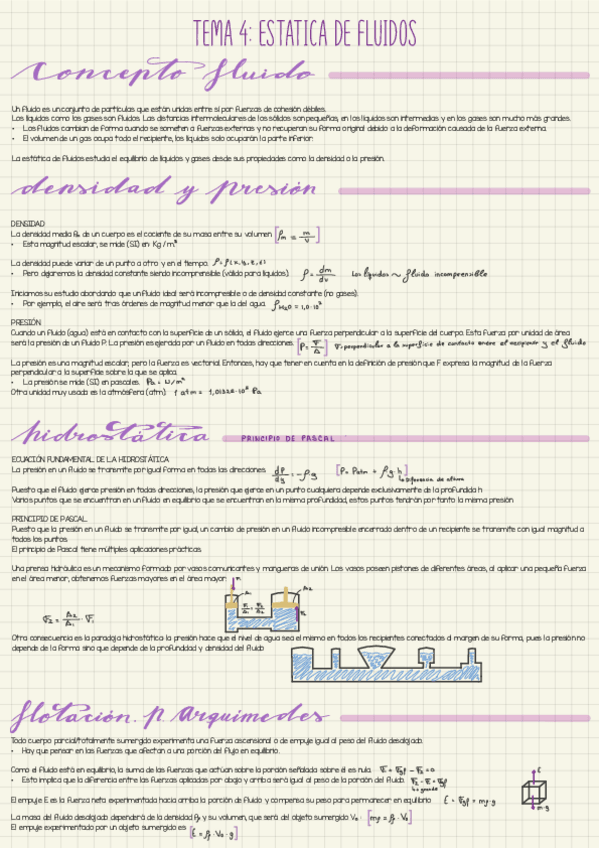 TEMA 4: ESTATICA DE FLUIDOS
Concepto fluido
Un fluido es un conjunto de particulas que están unidas entre si por fuerzas de cohesión débiles.
Los líquidos como los gases son fluidos. Las distancias intermoleculares de los sólidos son pequeñas, en los líquidos son intermedias y en los gases son mucho más grandes.
• Los fluidos cambian de forma cuando se someten a fuerzas externas y no recuperan su forma original debido a la deformación causada de la fuerza externa.
• El volumen de un gas ocupa todo el recipiente, los líquidos solo ocuparán la parte inferior.
La estática de fluidos estudia el equilibrio de líquidos y gases desde sus propiedades como la densidad o la presión.
densidad y presión
DENSIDAD
La densidad media ρm de un cuerpo es el cociente de su masa entre su volumen [ρm = m/V]
• Esta magnitud escalar, se mide (SI) en Kg/m³
La densidad puede variar de un punto a otro y en el tiempo. ρ = ρ(x, y, z, t)
• Pero dejaremos la densidad constante siendo incomprensible (válido para líquidos). ρ = dm/dv los líquidos ~ fluido incomprensible
Iniciamos su estudio abordando que un fluido ideal será incompresible o de densidad constante (no gases).
• Por ejemplo, el aire será tras órdenes de magnitud menor que la del agua. ρH₂O = 1,0·10³
PRESIÓN
Cuando un fluido (agua) está en contacto con la superficie de un sólido, el fluido ejerce una fuerza perpendicular a la superficie del cuerpo. Esta fuerza por unidad de área
será la presión de un fluido P. La presión es ejercida por un fluido en todas direcciones. [P = F/A] F: perpendicular a la superficie de contacto entre el recipiente y el fluido
La presión es una magnitud escalar, pero la fuerza es vectorial. Entonces, hay que tener en cuenta en la definición de presión que F expresa la magnitud de la fuerza
perpendicular a la superficie sobre la que se aplica.
• La presión se mide (SI) en pascales. Pa = N/m²
Otra unidad muy usada es la atmósfera (atm) 1 atm = 1,01325·10⁵ Pa
hidrostática PRINCIPIO DE PASCAL
ECUACIÓN FUNDAMENTAL DE LA HIDROSTÁTICA
La presión en un fluido se transmite por igual forma en todas las direcciones. dP/dy = -ρg [P = Patm + ρg·h]
↳ Diferencia de altura
Puesto que el fluido ejerce presión en todas direcciones, la presión que ejerce en un punto cualquiera depende exclusivamente de la profundida h
Varios puntos que se encuentran en un fluido en equilibrio que se encuentran en la misma profundidad, estos puntos tendrán por tanto la misma presión
PRINCIPIO DE PASCAL
Puesto que la presión en un fluido se transmite por igual, un cambio de presión en un fluido incompresible encerrado dentro de un recipiente se transmite con igual magnitud a
todos los puntos
El principio de Pascal tiene múltiples aplicaciones prácticas.
Una prensa hidráulica es un mecanismo formado por vasos comunicantes y mangueras de unión. Los vasos poseen pistones de diferentes áreas, al aplicar una pequeña fuerza
en el área menor, obtenemos fuerzas mayores en el área mayor.
A₁ A₂
F₁/A₁ = F₂/A₂
F₂ = A₂/A₁ · F₁
Otra consecuencia es la paradoja hidrostática: la presión hace que el nivel de agua sea el mismo en todos los recipientes conectados al margen de su forma, pues la presión no
depende de la forma sino que depende de la profundidad y densidad del fluido.
flotación. p. Arquimedes
Todo cuerpo parcial/totalmente sumergido experimenta una fuerza ascensional o de empuje igual al peso del fluido desalojado.
• Hay que pensar en las fuerzas que afectan a una porción del flujo en equilibrio.
Como el fluido está en equilibrio, la suma de las fuerzas que actúan sobre la porción señalada sobre él es nula.
• Esto implica que la diferencia entre las fuerzas aplicadas por abajo y arriba será igual al peso de la porción del fluido.
El empuje E es la fuerza neta experimentada hacia arriba la porción de fluido y compensa su peso para permanecer en equilibrio
E
m·g
La masa del fluido desalojado dependerá de la densidad ρf y su volumen, que será del objeto sumergido Vo: [mf = ρf·Vo]
El empuje experimentado por un objeto sumergido es [E = ρf·Vo·g]